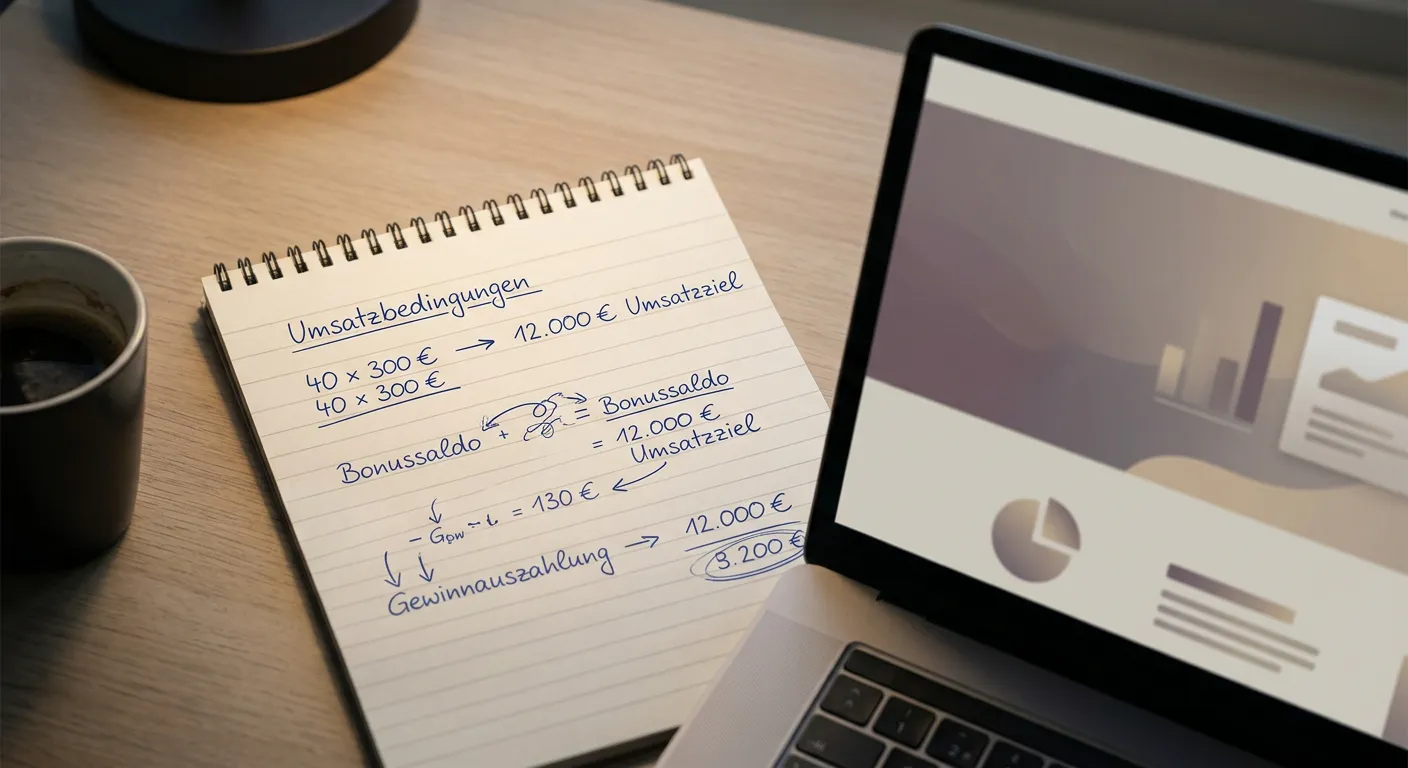 Umsatzbedingungen
40 × 300 € → 12.000 € Umsatzziel
40 × 300 €
Bonussaldo + = Bonussaldo
= 12.000 €
Umsatzziel
= 130 €
Gewinnauszahlung → 12.000 €
3.200 €